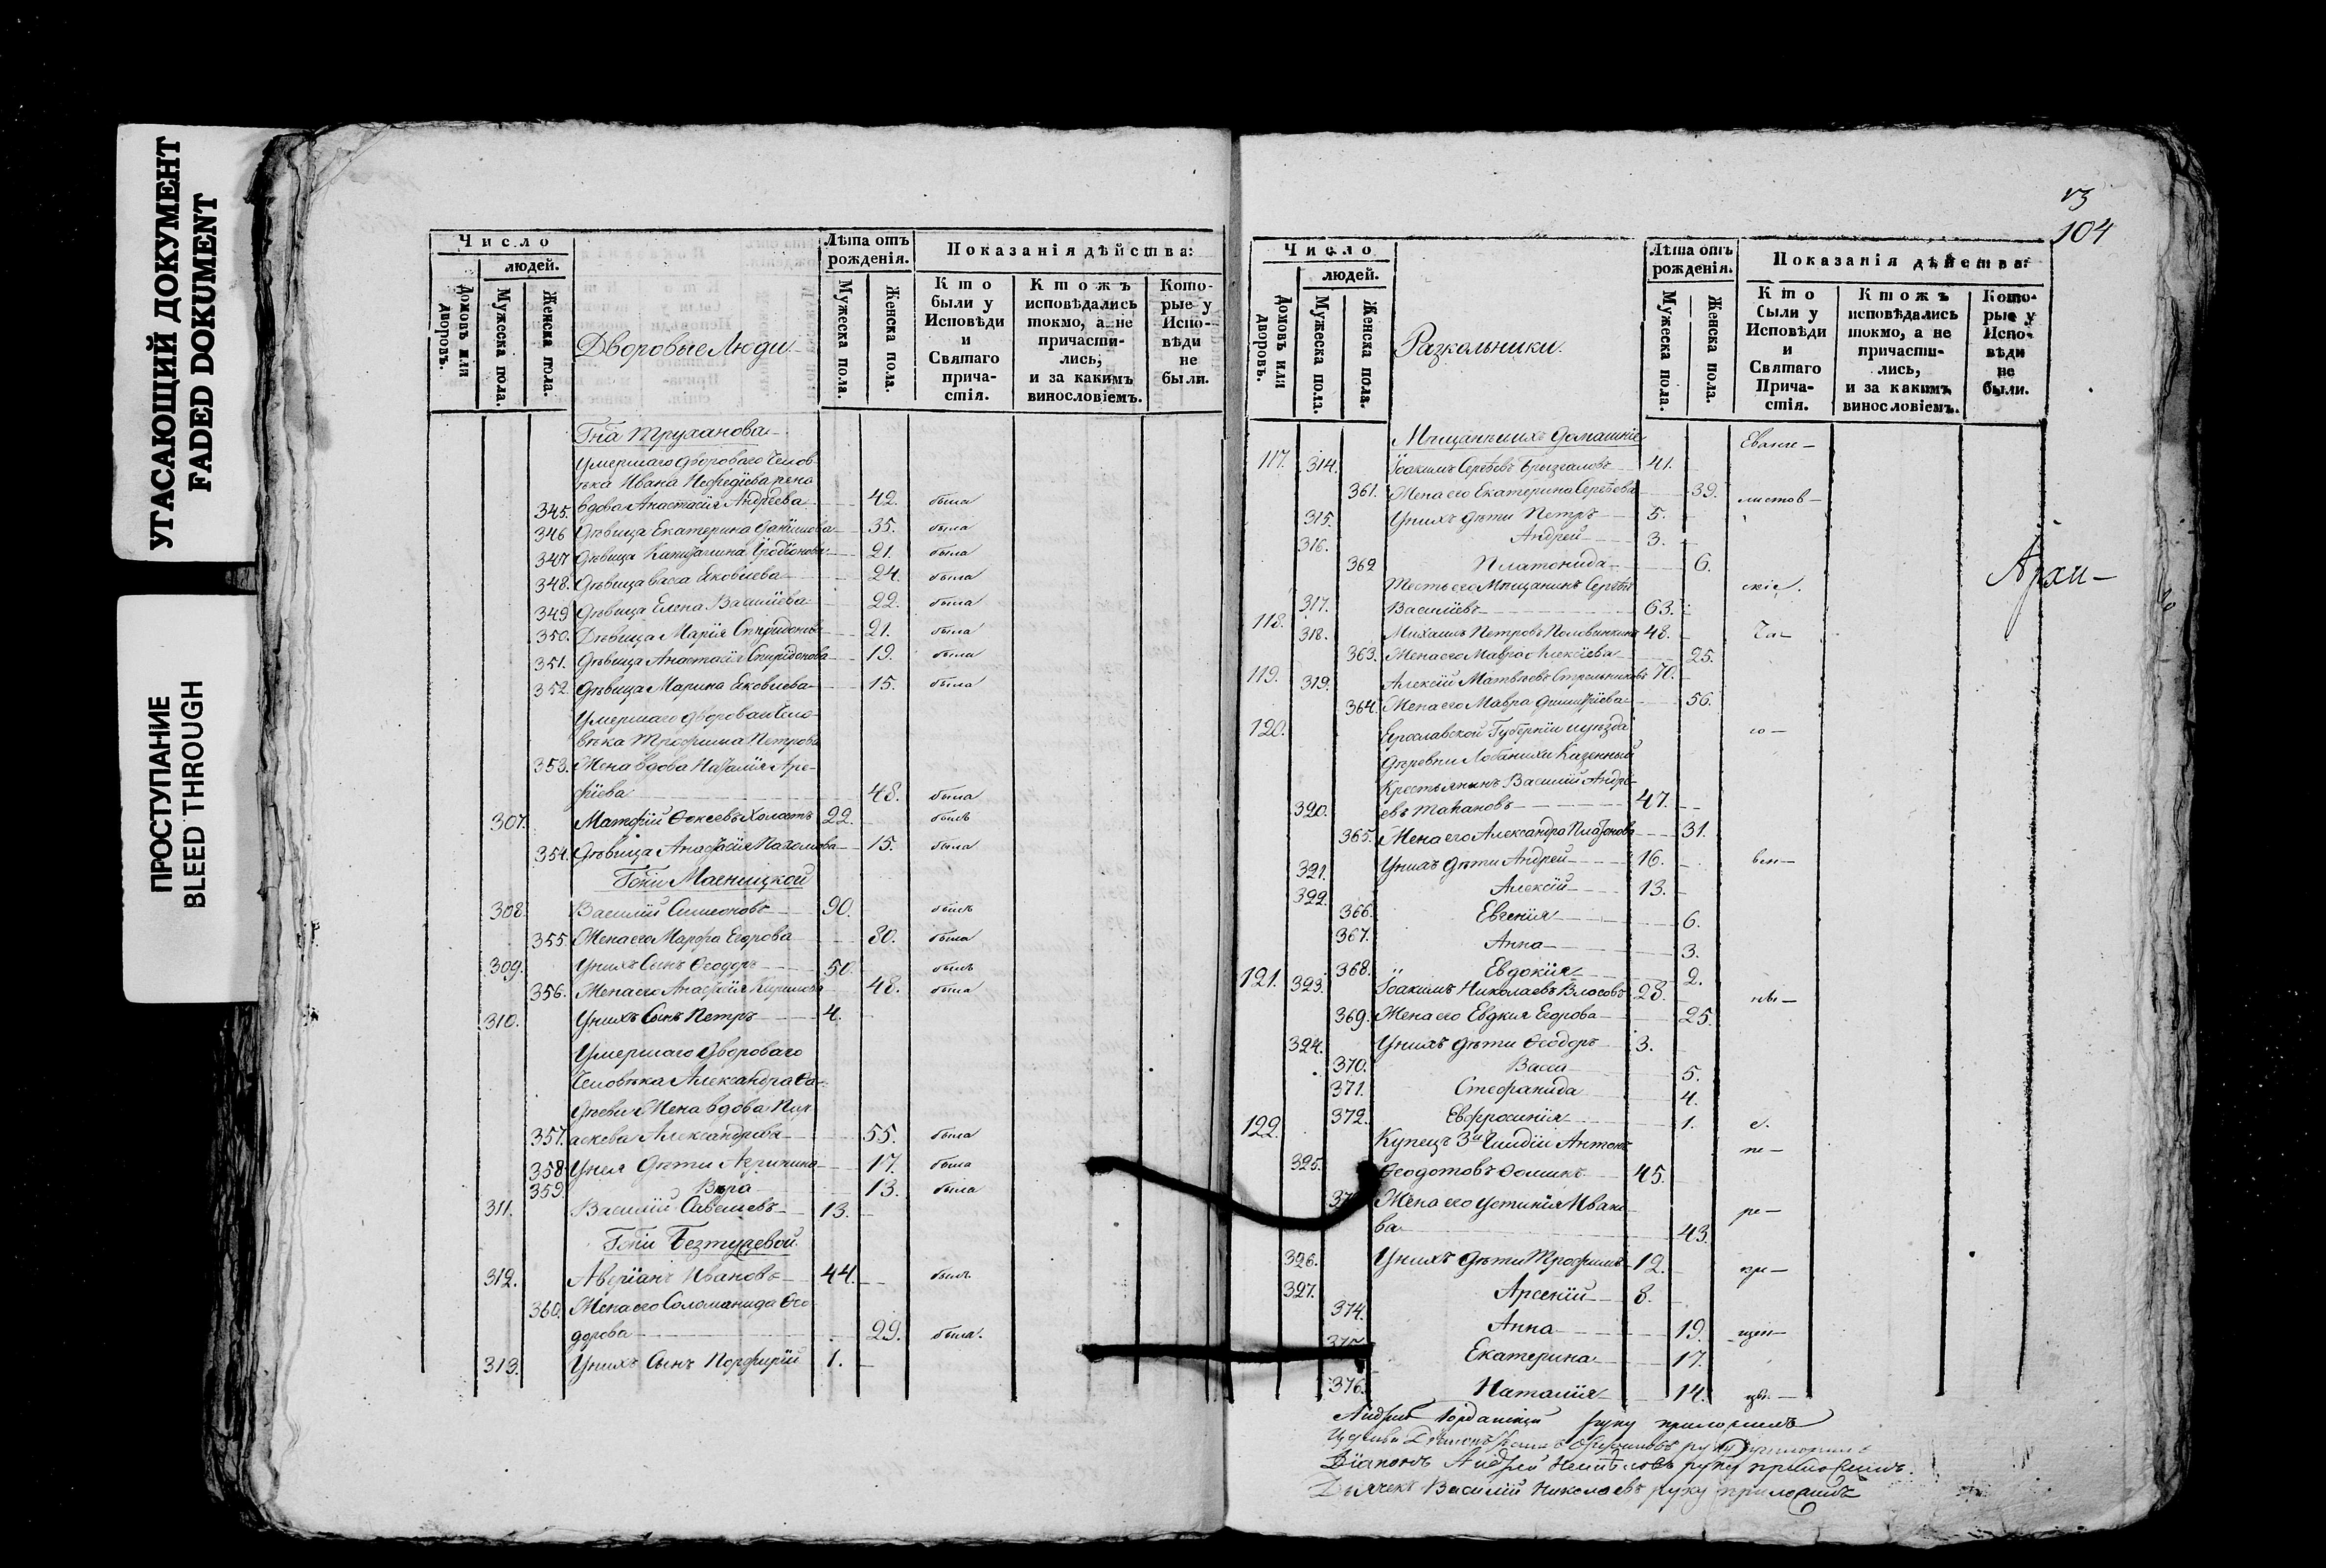 УГАСАЮЩИЙ ДОКУМЕНТ
FADED DOKUMENT
ПРОСТУПАНИЕ
BLEED THROUGH
Число
людей.
Домовъ или дворовъ.
Мужеска пола.
Женска пола.
Дворовые Люди.
Лѣта отъ рожденія.
Мужеска пола.
Женска пола.
Показанія дѣйства:
Кто были у Исповѣди и Святаго причастія.
Ктожъ исповѣдались токмо, а не причастились, и за какимъ винословіемъ.
Которые у Исповѣди не были.
Гна Труханова
Умершаго Двороваго Челов
ѣка Ивана
345. вдова Анастасія Андреева 42. была
346 Дѣвица Екатерина Данилова 35. была
347 Дѣвица 21. была
348. Дѣвица Васса Яковлева 24. была
349 Дѣвица Елена Васильева 22. была
350. Дѣвица Марія Спиридонова 21. была
351. Дѣвица Анастасія Спиридонова 19. была
352 Дѣвица Марина Яковлева 15. была
Умершаго Двороваго Чело
вѣка Трофима Петрова
353. Жена вдова Наталія Аре
фіева 48. была
307. Матфій Холостъ 22. былъ
354. Дѣвица 15. была
Гжи Масницкой
308 Василій Симеоновъ 90. былъ
355. Жена его Марфа Егорова 80. была
309. У нихъ Сынъ Ѳеодоръ 50. былъ
356. Жена его 48. была
310. У нихъ Сынъ Петръ 4. —
Умершаго Двороваго
Человѣка Александра Ѳа
дѣева Жена вдова Пар
357. аскева Александрова 55. была
358 У нея Дѣти Агрипина 17. была
359. Вѣра 13. была
311. Василій Савельевъ 13. —
Гжи Безтужевой
312. Аверіанъ Ивановъ 44. былъ
360. Жена его Соломанида Ѳео
дорова 29. была.
313. У нихъ Сынъ Порфирій 1. —
104
Число
людей.
Домовъ или дворовъ.
Мужеска пола.
Женска пола.
Разкольники.
Лѣта отъ рожденія.
Мужеска пола.
Женска пола.
Показанія дѣйства:
Кто были у Исповѣди и Святаго Причастія.
Ктожъ исповѣдались токмо, а не причастились, и за какимъ винословіемъ.
Которые у Исповѣди не были.
Мѣщане и ихъ Домашніе
Еванге —
117. 314. Іоакимъ Сергѣевъ 41.
361. Жена его Екатерина Сергѣева 39.
листов —
315. У нихъ Дѣти Петръ 5.
316. Андрей 3.
362 Платонида 6.
Архи —
Тесть его Мѣщанинъ Сергѣй
скіе.
317. Васильевъ 63.
118. 318. Михаилъ Петровъ Половинкинъ 48. Ча —
363. Жена его Мавра Алексіева 25.
119. 319. Алексій Матвѣевъ Стрельниковъ 70.
364. Жена его Мавра Димитріева 56.
120. Ярославской Губерніи и уѣзда со —
Деревни Лобанихи Казенный
Крестьянинъ Василій Андре
320. евъ 47.
365. Жена его Александра Платонова 31.
321. У нихъ Дѣти Андрей 16. вен —
322. Алексій 13.
366. Евгенія 6.
367. Анна 3.
368. Евдокія 2.
121. 323. Іоакимъ Николаевъ Власовъ 28. ны —
369. Жена его Евдкия Егорова 25.
324. У нихъ Дѣти Ѳеодоръ 3.
370. Васса 5.
371. Стефанида 4.
372. Евфросинія 1. е.
122. Купецъ 3й Гилдіи Антонъ пе —
325. Ѳеодотовъ Ѳоминъ 45.
Жена его Устинія Ивано
ре —
ва 43.
326. У нихъ Дѣти Трофимъ 12. кре —
327. Арсеній 8.
374. Анна 19. щен —
375. Екатерина 17.
376. Наталія 14.
Андрей руку приложилъ
руку приложилъ
Діаконъ Андрей руку приложилъ.
Дьячекъ Василій Николаевъ руку приложилъ